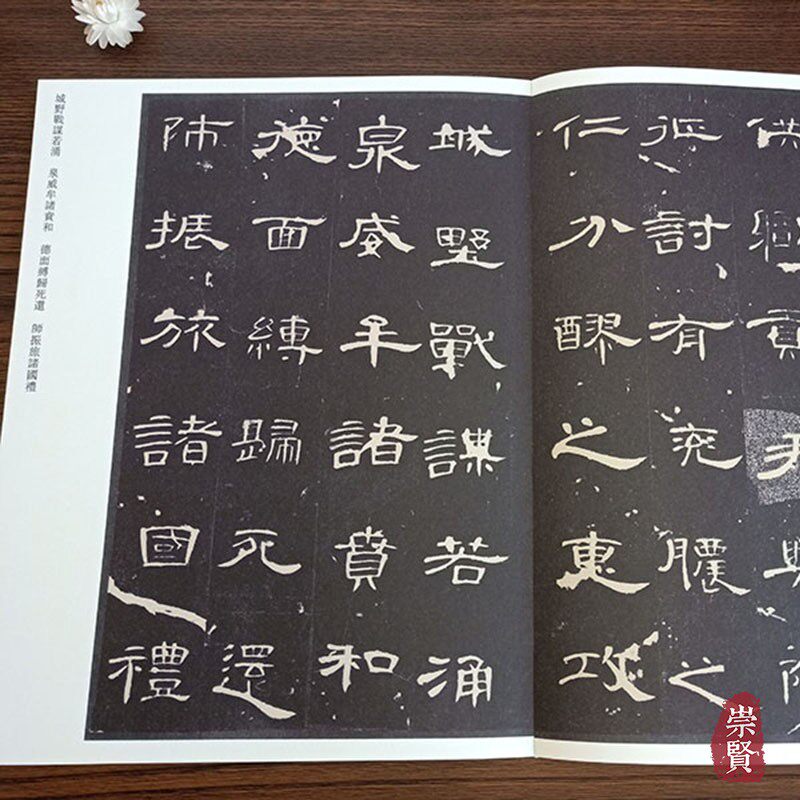 供職貢君興師
征討有兖膿之
仁分醪之惠攻
城墅戰謀若涌
泉威牟諸賁和
德面縛歸死還
師振旅諸國禮
城野戰謀若涌 泉威牟諸賁和 德面縛歸死還 師振旅諸國禮
崇賢